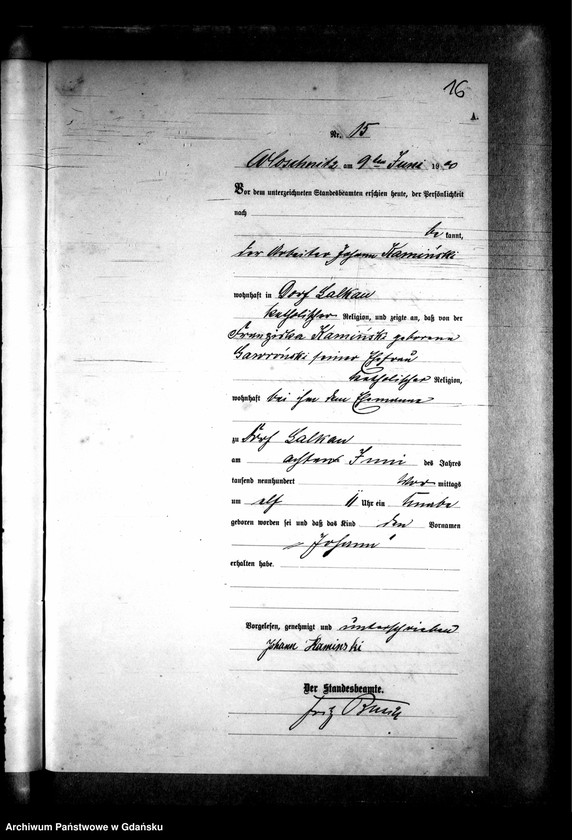 16
A.
Nr. 15
Wloschnitz am 9ten Juni 1900
Vor dem unterzeichneten Standesbeamten erschien heute, der Persönlichkeit
nach
be kannt,
der Arbeiter Johann Kamiński
wohnhaft in Dorf Salkau
katholischer Religion, und zeigte an, daß von der
Franziska Kamiński geborene
Gawroński seiner Ehefrau
katholischer Religion,
wohnhaft bei ihm dem Ehemanne
zu Dorf Salkau
am achten Juni des Jahres
tausend neunhundert Vor mittags
um elf Uhr ein Knabe
geboren worden sei und daß das Kind den Vornamen
„Johann“
erhalten habe.
Vorgelesen, genehmigt und unterschrieben
Johann Kaminski
Der Standesbeamte.
Fritz
Archiwum Państwowe w Gdańsku